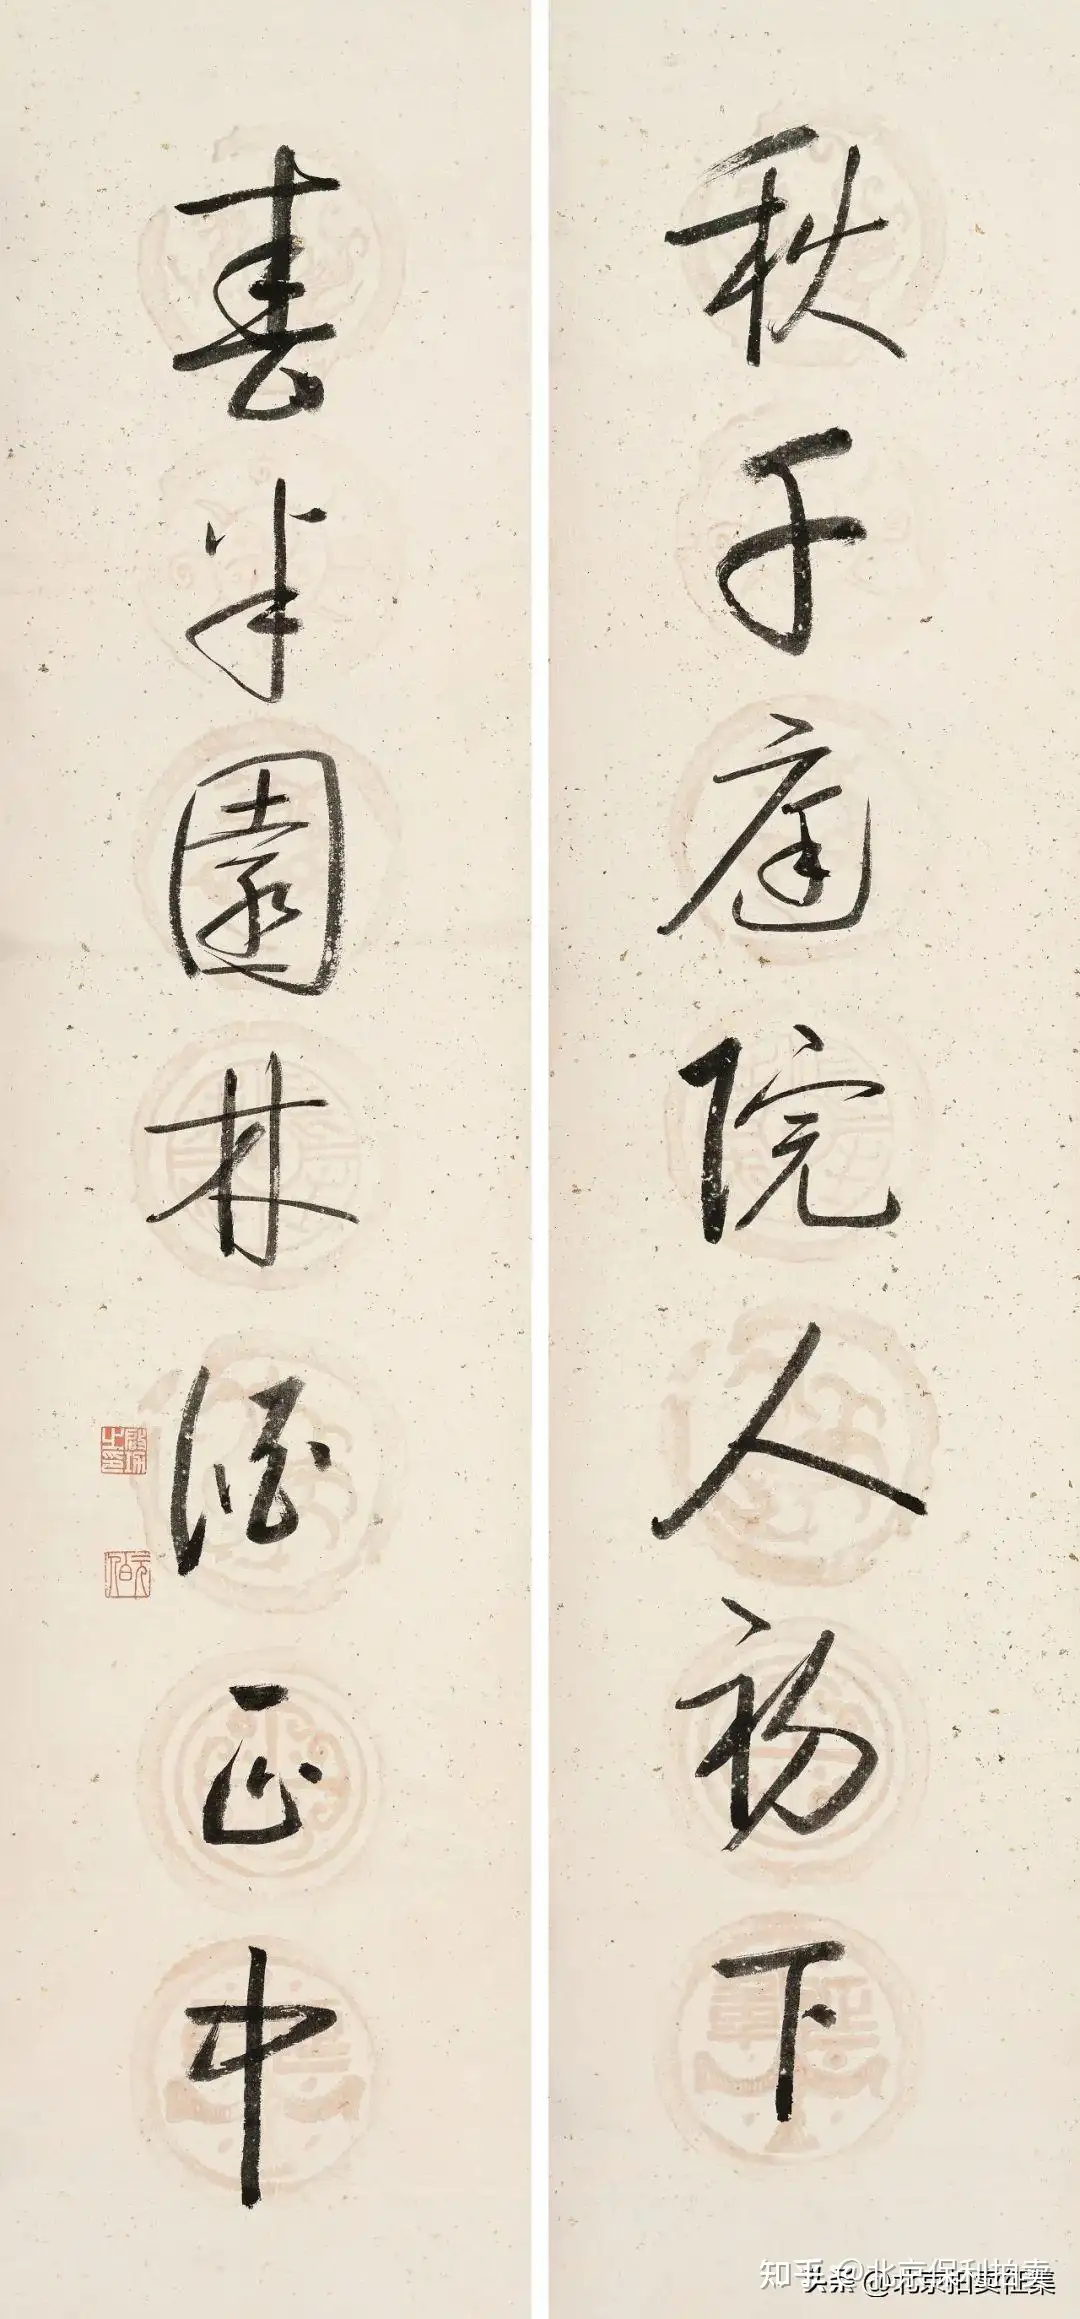 秋千庭院人初下
春半園林酒正中
元伯
知乎 @北京保利拍卖
头条 @北京拍卖征集